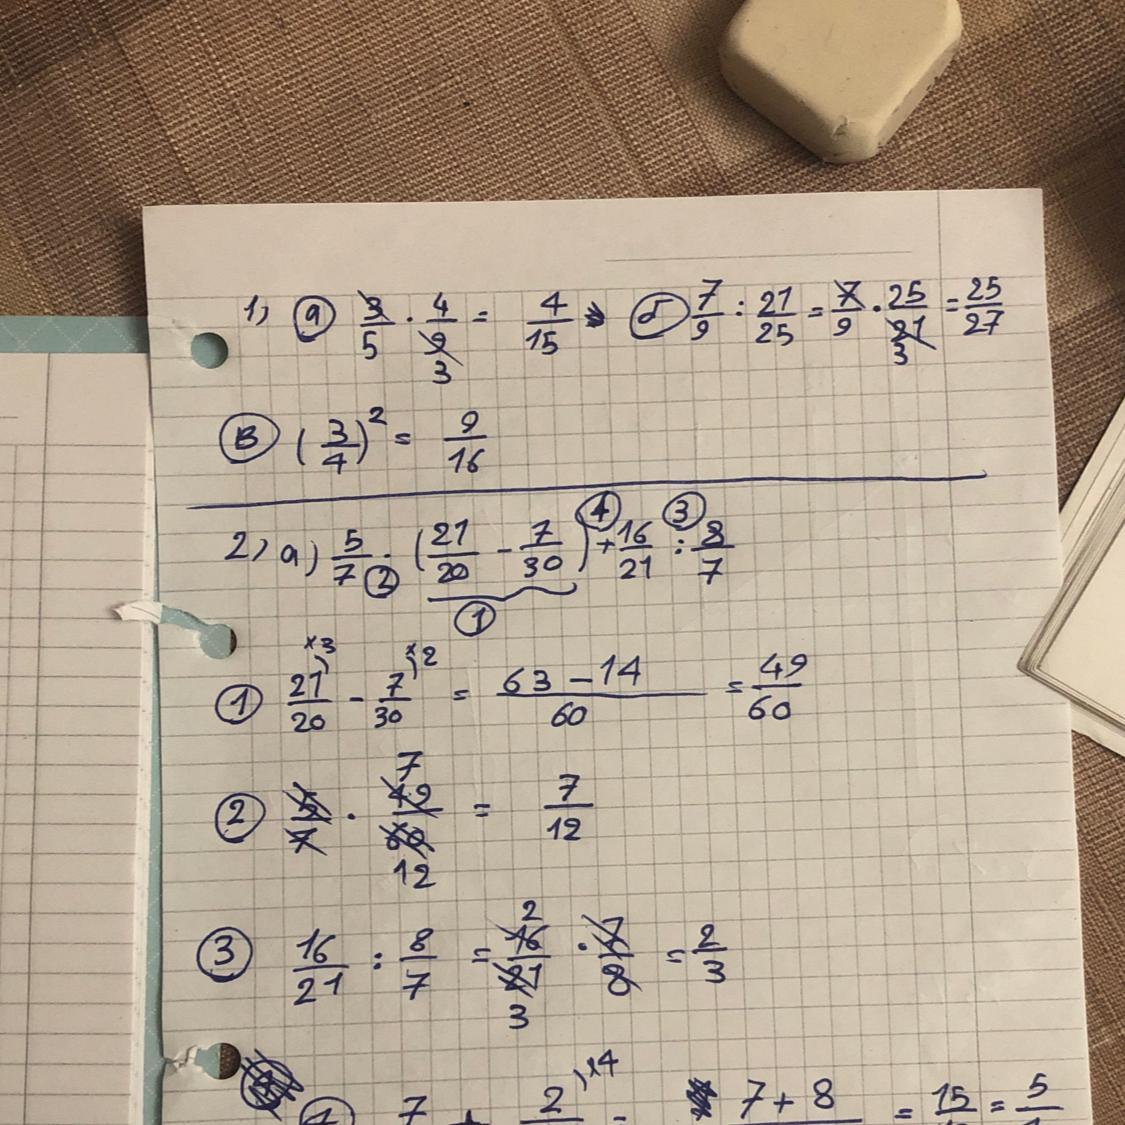 1) а) 3/5 · 4/9 3 = 4/15 б) 7/9 : 21/25 = 7/9 · 25/21 3 = 25/27
в) (3/4)² = 9/16
2) а) 5/7 · (21/20 - 7/30) + 16/21 : 8/7
2 1 4 3
1 21/20 ×3 - 7/30 ×2 = 63 - 14/60 = 49/60
2 5/7 · 49/60 7 12 = 7/12
3 16/21 : 8/7 = 16/21 2 3 · 7/8 = 2/3
7 + 2 ×4 = 7 + 8 = 15 = 5